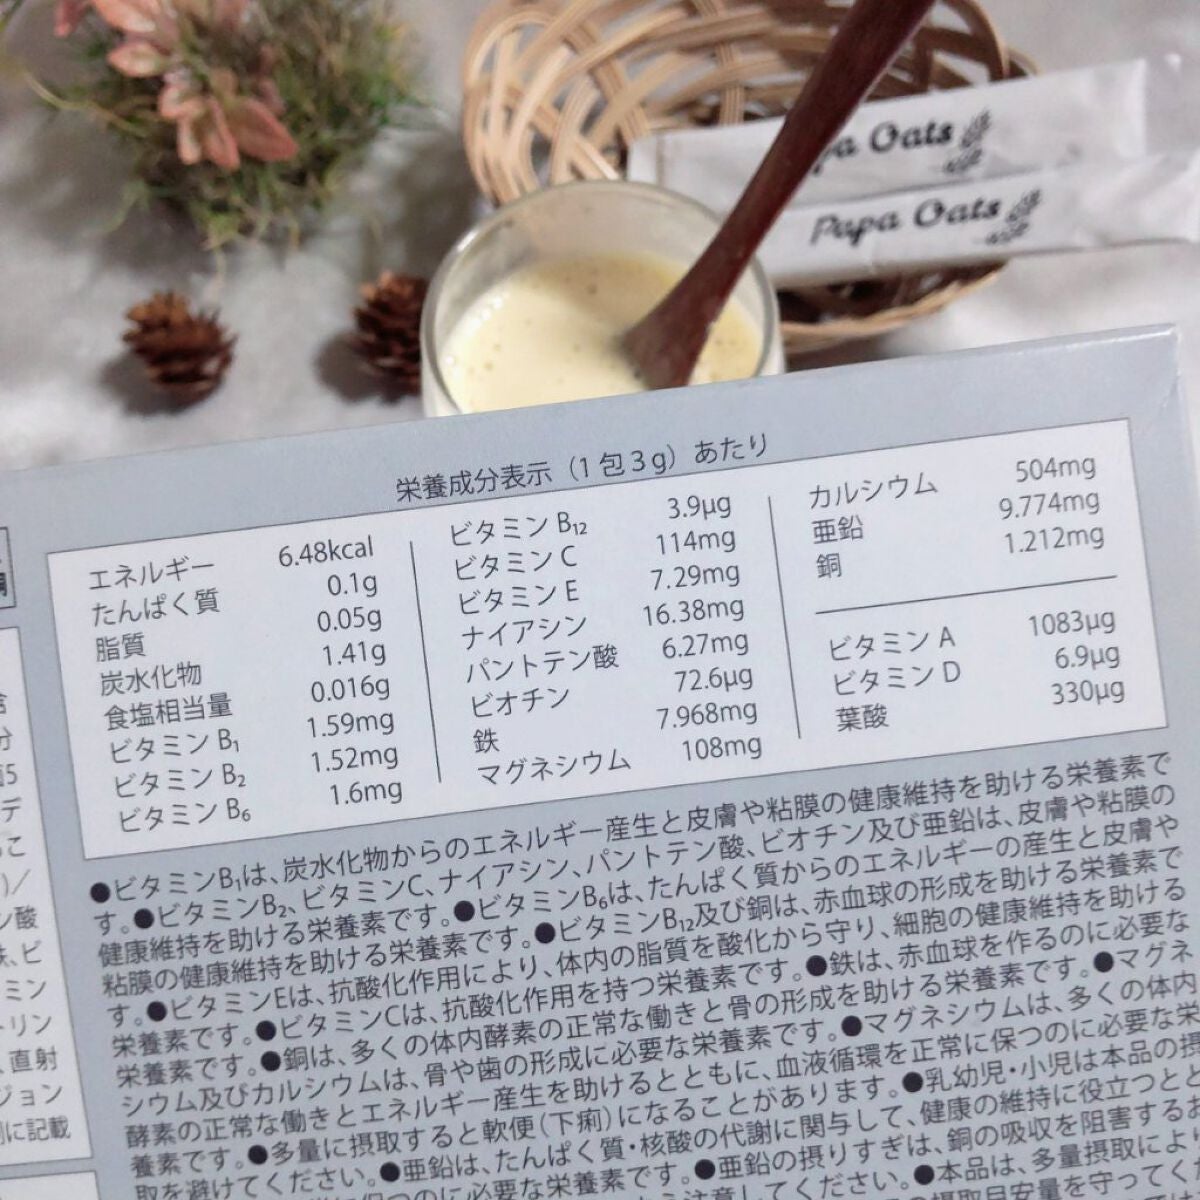 pa Oats
Papa Oats
栄養成分表示（1包3g）あたり
エネルギー 6.48kcal
たんぱく質 0.1g
脂質 0.05g
炭水化物 1.41g
食塩相当量 0.016g
ビタミン B₁ 1.59mg
ビタミン B₂ 1.52mg
ビタミン B₆ 1.6mg
ビタミン B₁₂ 3.9μg
ビタミン C 114mg
ビタミン E 7.29mg
ナイアシン 16.38mg
パントテン酸 6.27mg
ビオチン 72.6μg
鉄 7.968mg
マグネシウム 108mg
カルシウム 504mg
亜鉛 9.774mg
銅 1.212mg
ビタミン A 1083μg
ビタミン D 6.9μg
葉酸 330μg
●ビタミンB₁は、炭水化物からのエネルギー産生と皮膚や粘膜の健康維持を助ける栄養素で
す。●ビタミンB₂、ビタミンC、ナイアシン、パントテン酸、ビオチン及び亜鉛は、皮膚や粘膜の
健康維持を助ける栄養素です。●ビタミンB₆は、たんぱく質からのエネルギーの産生と皮膚や
粘膜の健康維持を助ける栄養素です。●ビタミンB₁₂及び銅は、赤血球の形成を助ける栄養素で
す。●ビタミンEは、抗酸化作用により、体内の脂質を酸化から守り、細胞の健康維持を助ける
栄養素です。●ビタミンCは、抗酸化作用を持つ栄養素です。●鉄は、赤血球を作るのに必要な
栄養素です。●銅は、多くの体内酵素の正常な働きと骨の形成を助ける栄養素です。●マグネ
シウム及びカルシウムは、骨や歯の形成に必要な栄養素です。●マグネシウムは、多くの体内
酵素の正常な働きとエネルギー産生を助けるとともに、血液循環を正常に保つのに必要な栄
養素です。●多量に摂取すると軟便（下痢）になることがあります。●乳幼児・小児は本品の摂
取を避けてください。●亜鉛は、たんぱく質・核酸の代謝に関与して、健康の維持に役立つとと
に保つのに必要な栄養素です。●亜鉛の摂りすぎは、銅の吸収を阻害するお
注意してください。●本品は、多量摂取により
摂取目安量を守ってく
分
デ
こ
)／
ン酸
ビ
ミン
リン
直射
ジョン
に記載